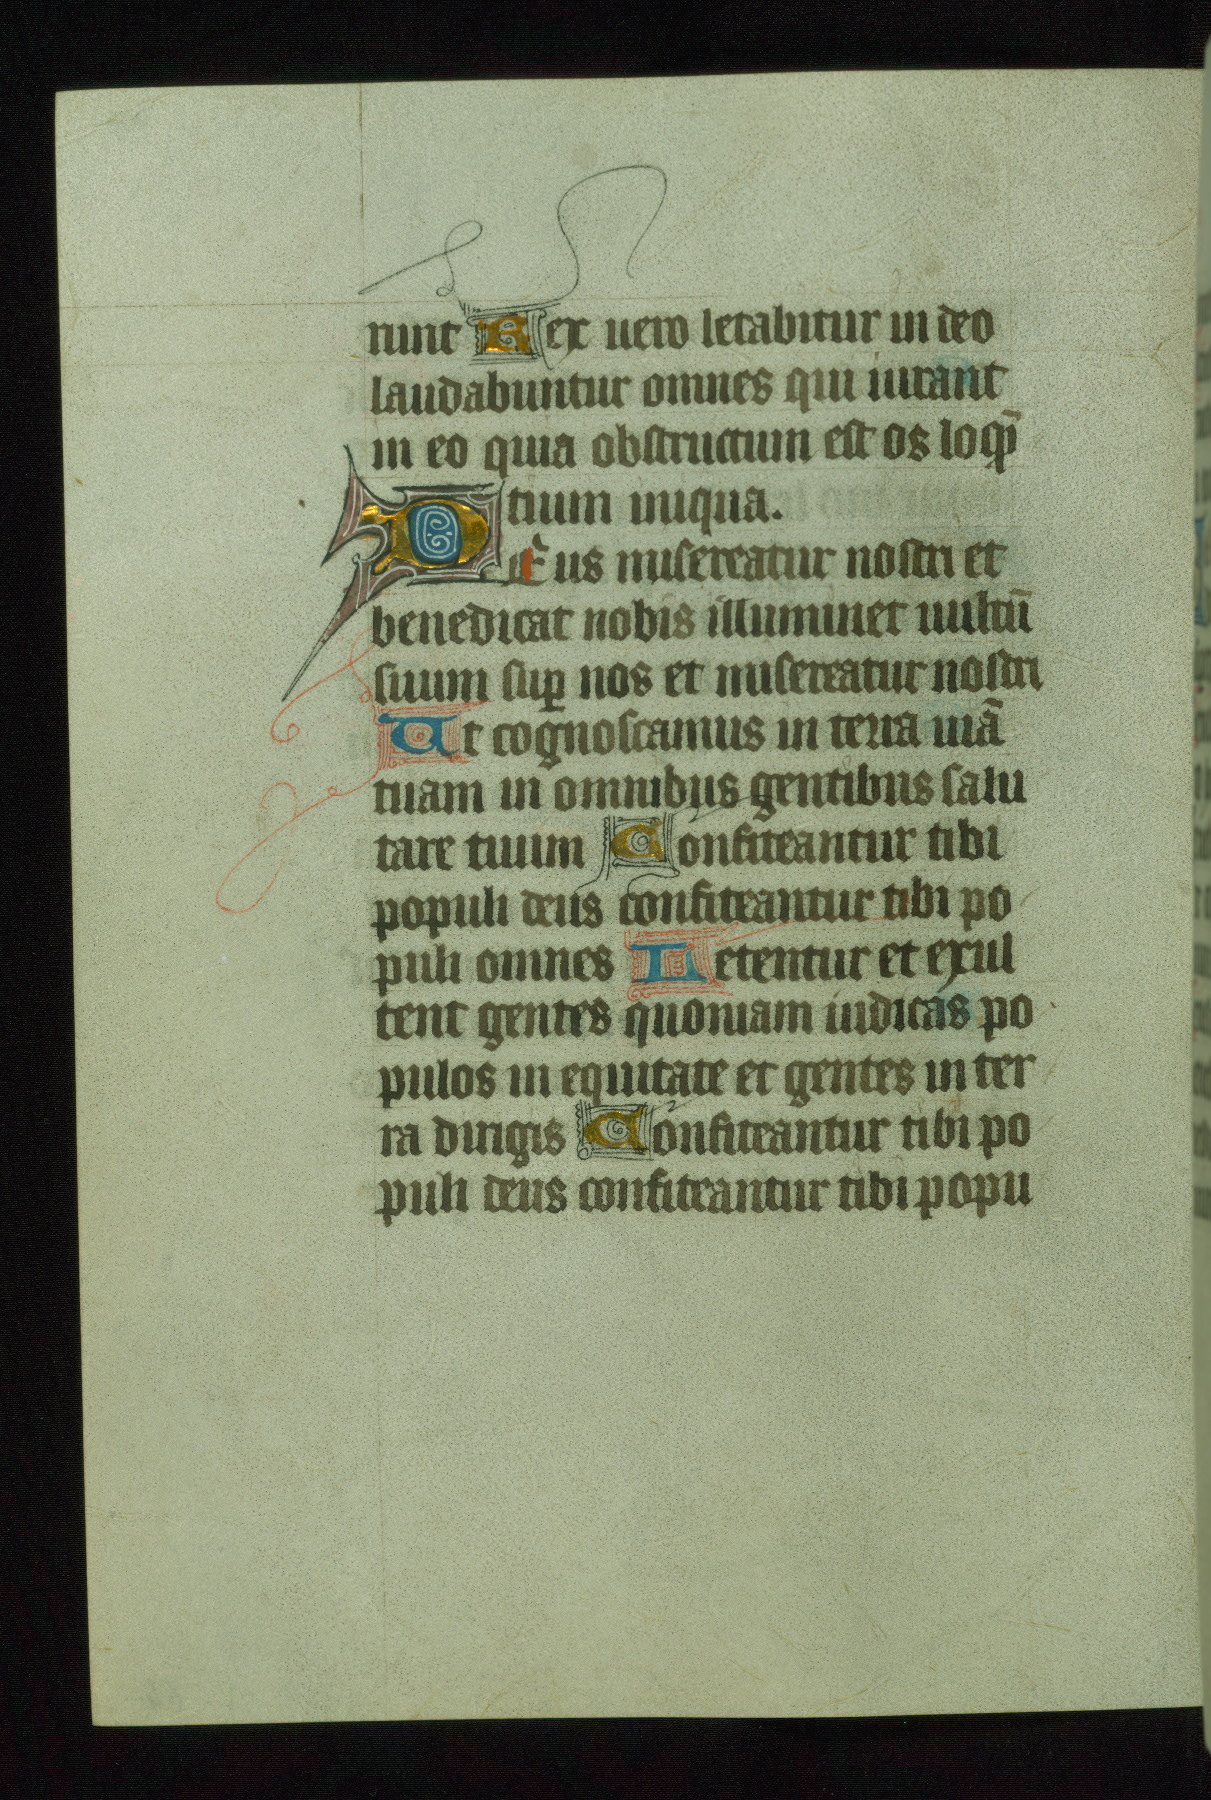 runt Rex uero letabitur in deo
laudabuntur omnes qui iurant
in eo quia obstructum est os loqͣ̄
tium iniqua.
Deus misereatur nostri et
benedicat nobis illuminet uultū
suum suꝑ nos et misereatur nostri
Ut cognoscamus in terra uiā
tuam in omnibus gentibus salu
tare tuum Confiteantur tibi
populi deus confiteantur tibi po
puli omnes Letentur et exul
tent gentes quoniam iudicas po
pulos in equitate et gentes in ter
ra dirigis Confiteantur tibi po
puli deus confiteantur tibi popu